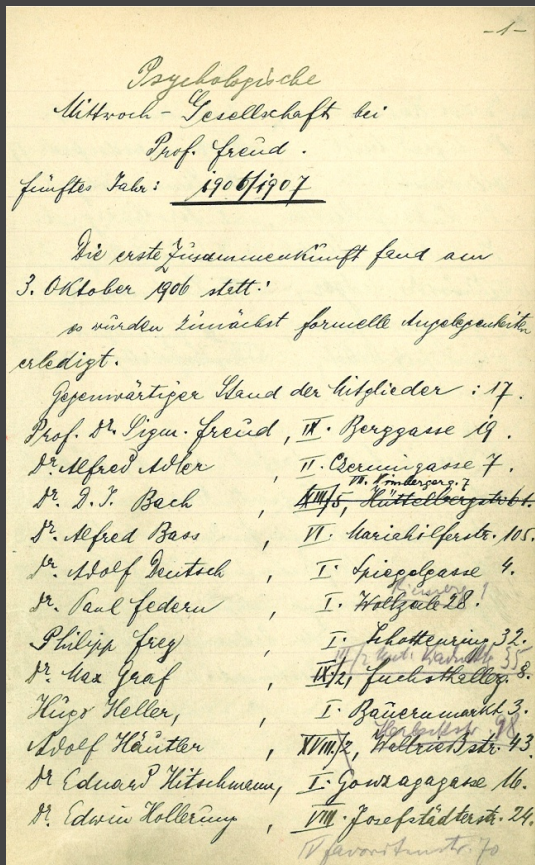 -1-
Psychologische
Mittwoch-Gesellschaft bei
Prof. Freud.
fünftes Jahr: 1906/1907
Die erste Zusammenkunft fand am
3. Oktober 1906 statt:
es wurden zunächst formelle Angelegenheiten
erledigt.
Gegenwärtiger Stand der Mitglieder: 17.
Prof. Dr. Sigm. Freud, IX. Berggasse 19.
Dr. Alfred Adler, II. Czerningasse 7.
Dr. D. J. Bach, XIII/5, Hüttelbergstr. 61.
Dr. Alfred Bass, VI. Mariahilferstr. 105.
Dr. Adolf Deutsch, I. Spiegelgasse 4.
Dr. Paul Federn, I. Wollzeile 28.
Philipp Frey, I. Schottenring 32.
Dr. Max Graf, IX/2, Fuchsthallerg. 8.
Hugo Heller, I. Bauernmarkt 3.
Adolf Häutler, XVIII/2, 43.
Dr. Eduard Hitschmann, I. Gonzagagasse 16.
Dr. Edwin Hollerung, VIII. Josefstädterstr. 24.
IV Favoritenstr. 70